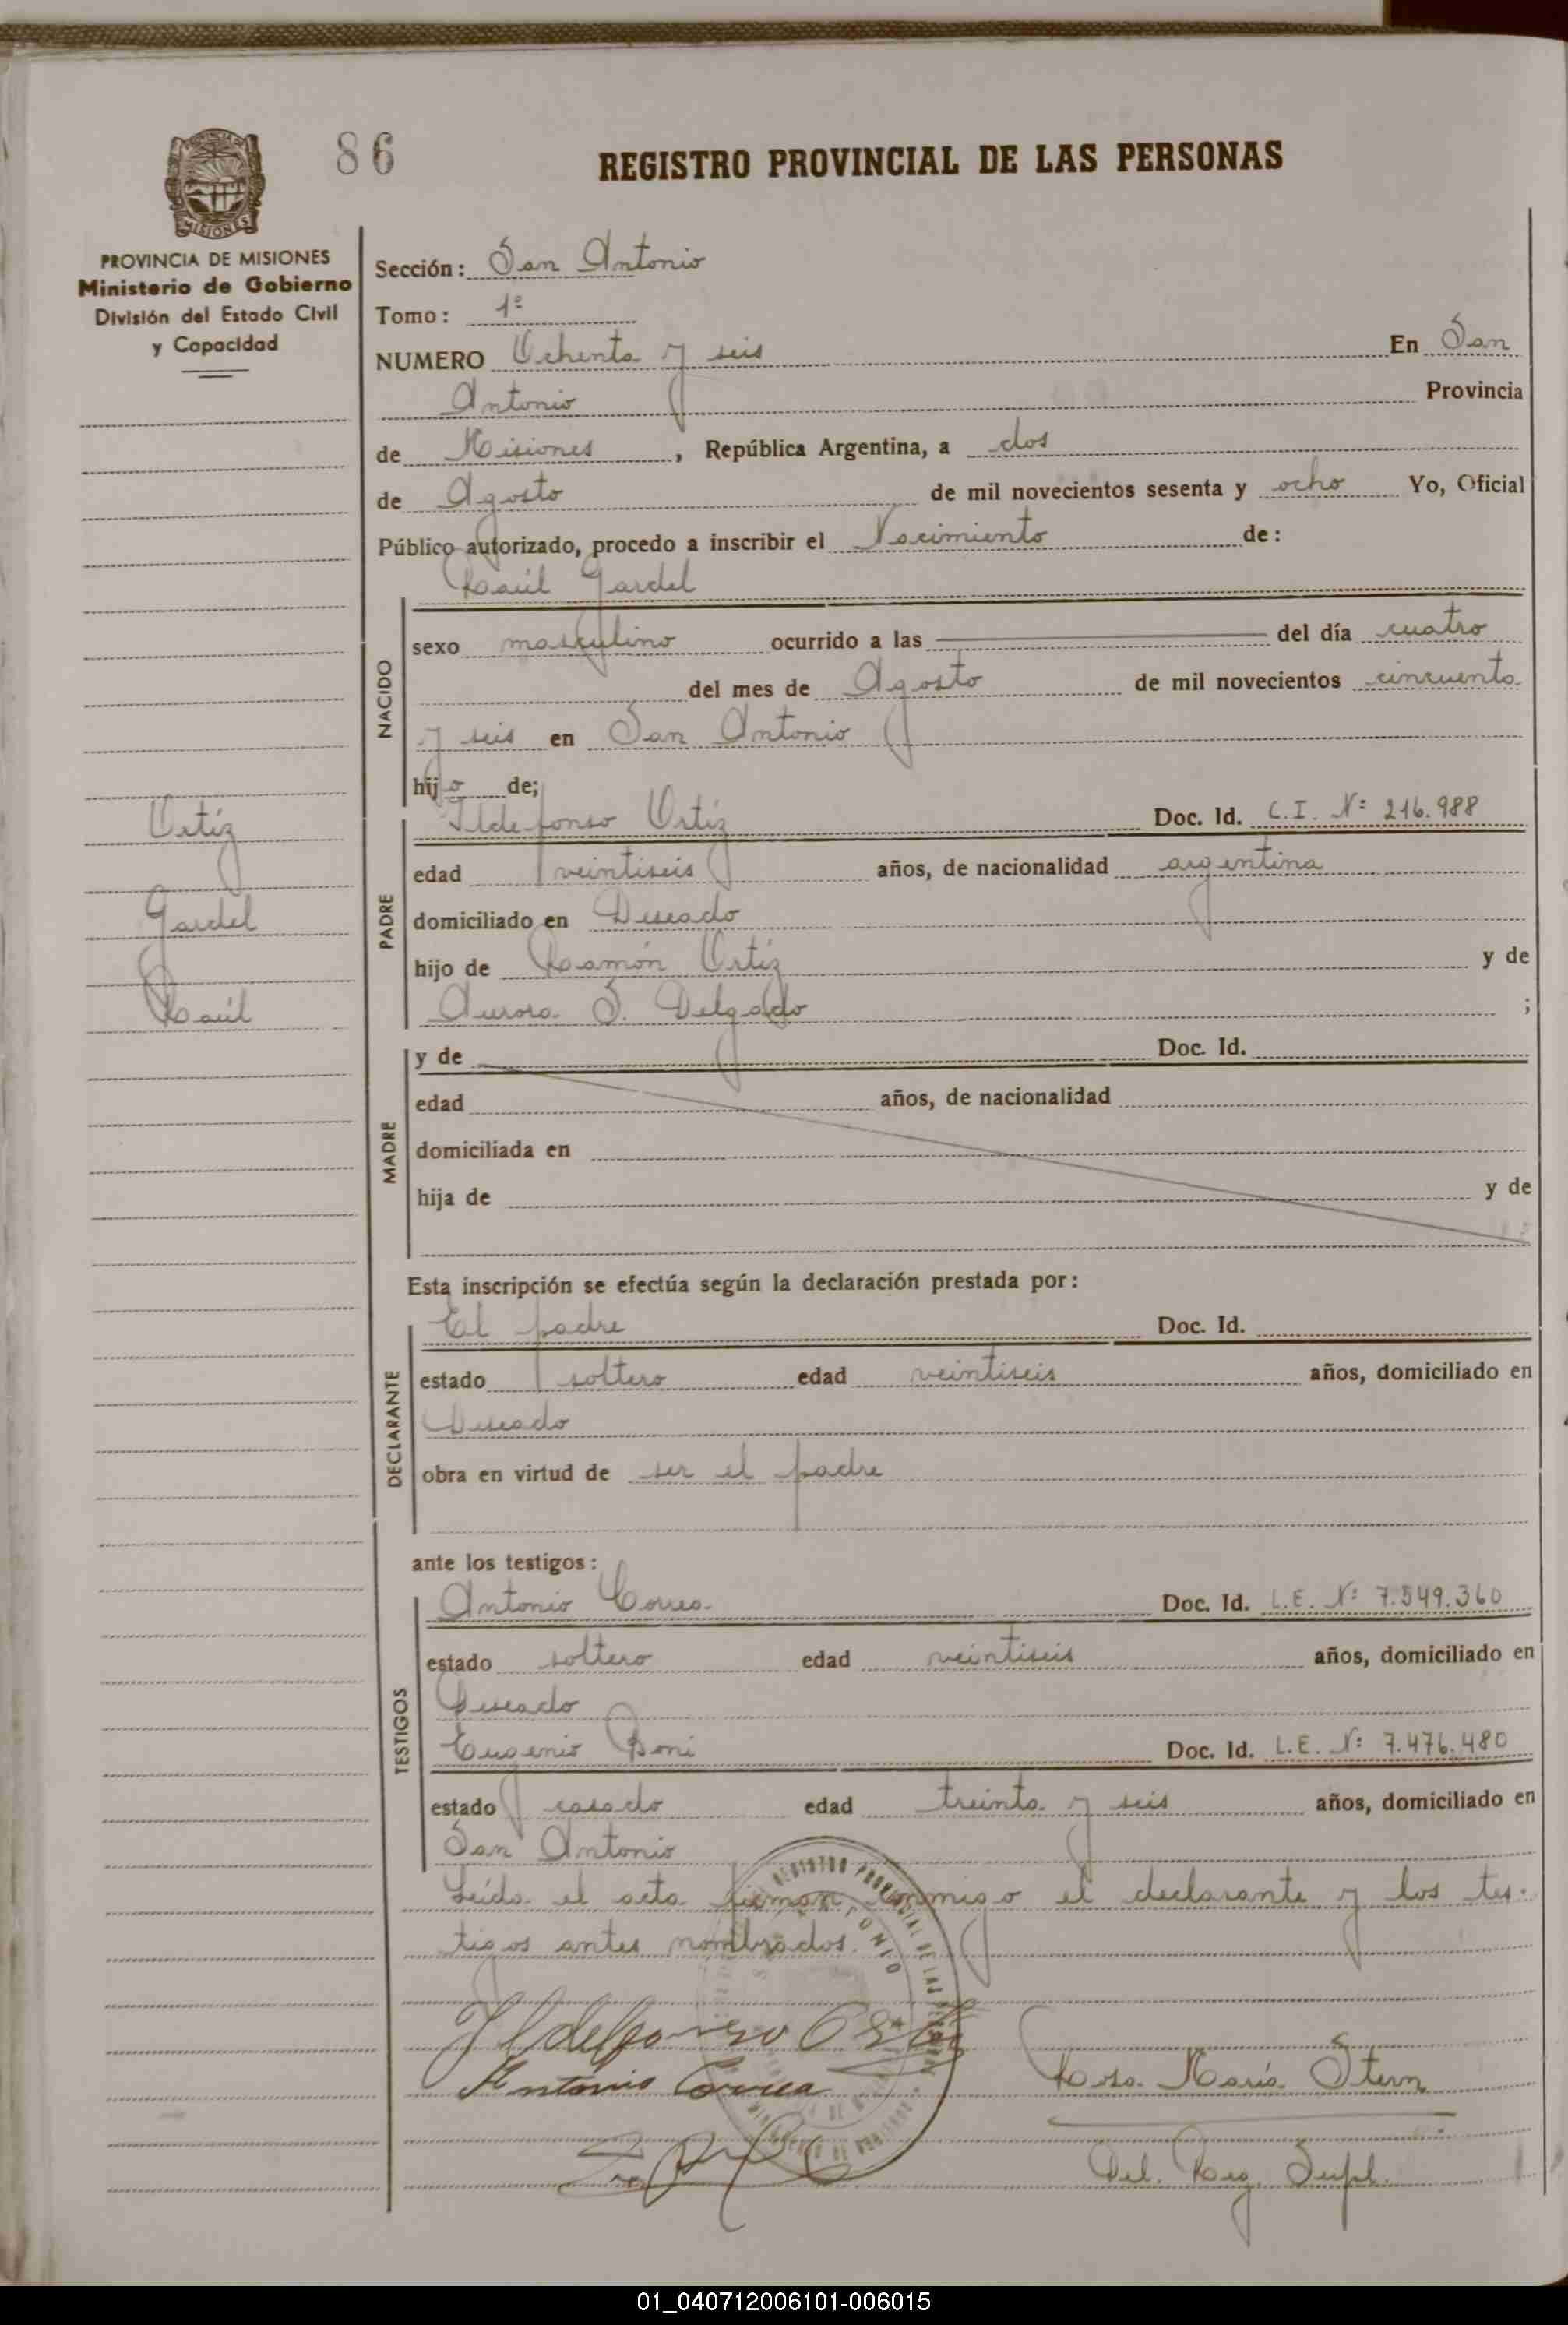 86
REGISTRO PROVINCIAL DE LAS PERSONAS
MISIONES
PROVINCIA DE MISIONES
Ministerio de Gobierno
División del Estado Civil
y Capacidad
Sección: San Antonio
Tomo: 1º
NUMERO Ochenta y seis En San
Antonio Provincia
de Misiones, República Argentina, a dos
de Agosto de mil novecientos sesenta y ocho Yo, Oficial
Público autorizado, procedo a inscribir el Nacimiento de:
Raúl Gardel
NACIDO
sexo masculino ocurrido a las del día cuatro
del mes de Agosto de mil novecientos cincuenta
y seis en San Antonio
hijo de;
Ortíz
Gardel
Raúl
PADRE
Ildefonso Ortíz Doc. Id. C.I. Nº 216.988
edad veintiseis años, de nacionalidad argentina
domiciliado en Deseado
hijo de Ramón Ortíz y de
Aurora S. Delgado ;
MADRE
y de Doc. Id.
edad años, de nacionalidad
domiciliada en
hija de y de
Esta inscripción se efectúa según la declaración prestada por:
DECLARANTE
El padre Doc. Id.
estado soltero edad veintiseis años, domiciliado en
Deseado
obra en virtud de ser el padre
ante los testigos:
TESTIGOS
Antonio Correa Doc. Id. L.E. Nº 7.549.360
estado soltero edad veintiseis años, domiciliado en
Deseado
Eugenio Boni Doc. Id. L.E. Nº 7.476.480
estado casado edad treinta y seis años, domiciliado en
San Antonio
Leída el acta firman conmigo el declarante y los tes-
tigos antes nombrados.
Ildefonso Ortiz
Antonio Correa
Rosa María Stern
Del. Reg. Supl.
01_040712006101-006015